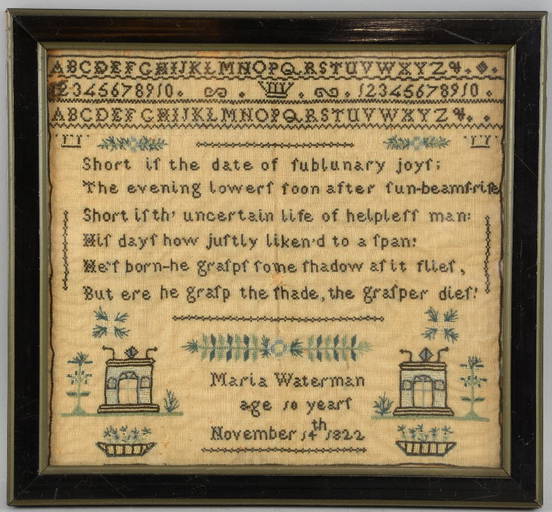 ABCDEFGHIJKLMNOPQRSTUVWXYZ&.
12345678910. 12345678910.
ABCDEFGHIJKLMNOPQRSTUVWXYZ&.
Short iſ the date of ſublunary joyſ;
The evening lowerſ ſoon after ſun-beamſ-riſe
Short iſ th' uncertain life of helpleſſ man:
Hiſ dayſ how juſtly liken'd to a ſpan:
He'ſ born-he graſpſ ſome ſhadow aſ it flieſ,
But ere he graſp the ſhade, the graſper dieſ!
Maria Waterman
age 10 yearſ
November 14th 1822